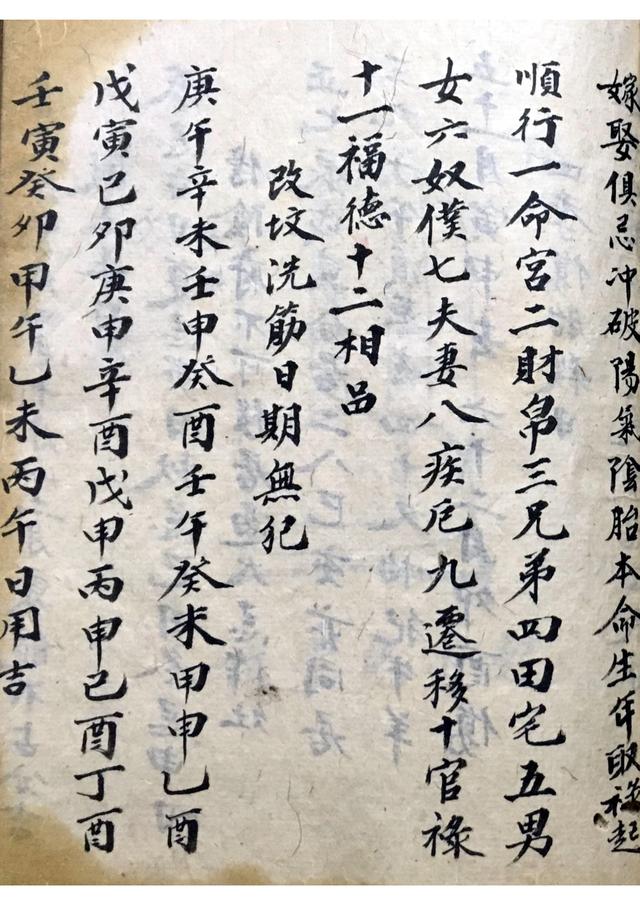 嫁娶俱忌冲破陽氣陰胎本命生年取祿起
順行一命宮二財帛三兄弟四田宅五男
女六奴僕七夫妻八疾厄九遷移十官祿
十一福德十二相品
改坟洗筋日期無犯
庚午辛未壬申癸酉壬午癸未甲申乙酉
戊寅己卯庚申辛酉戊申丙申己酉丁酉
壬寅癸卯甲午乙未丙午日用吉